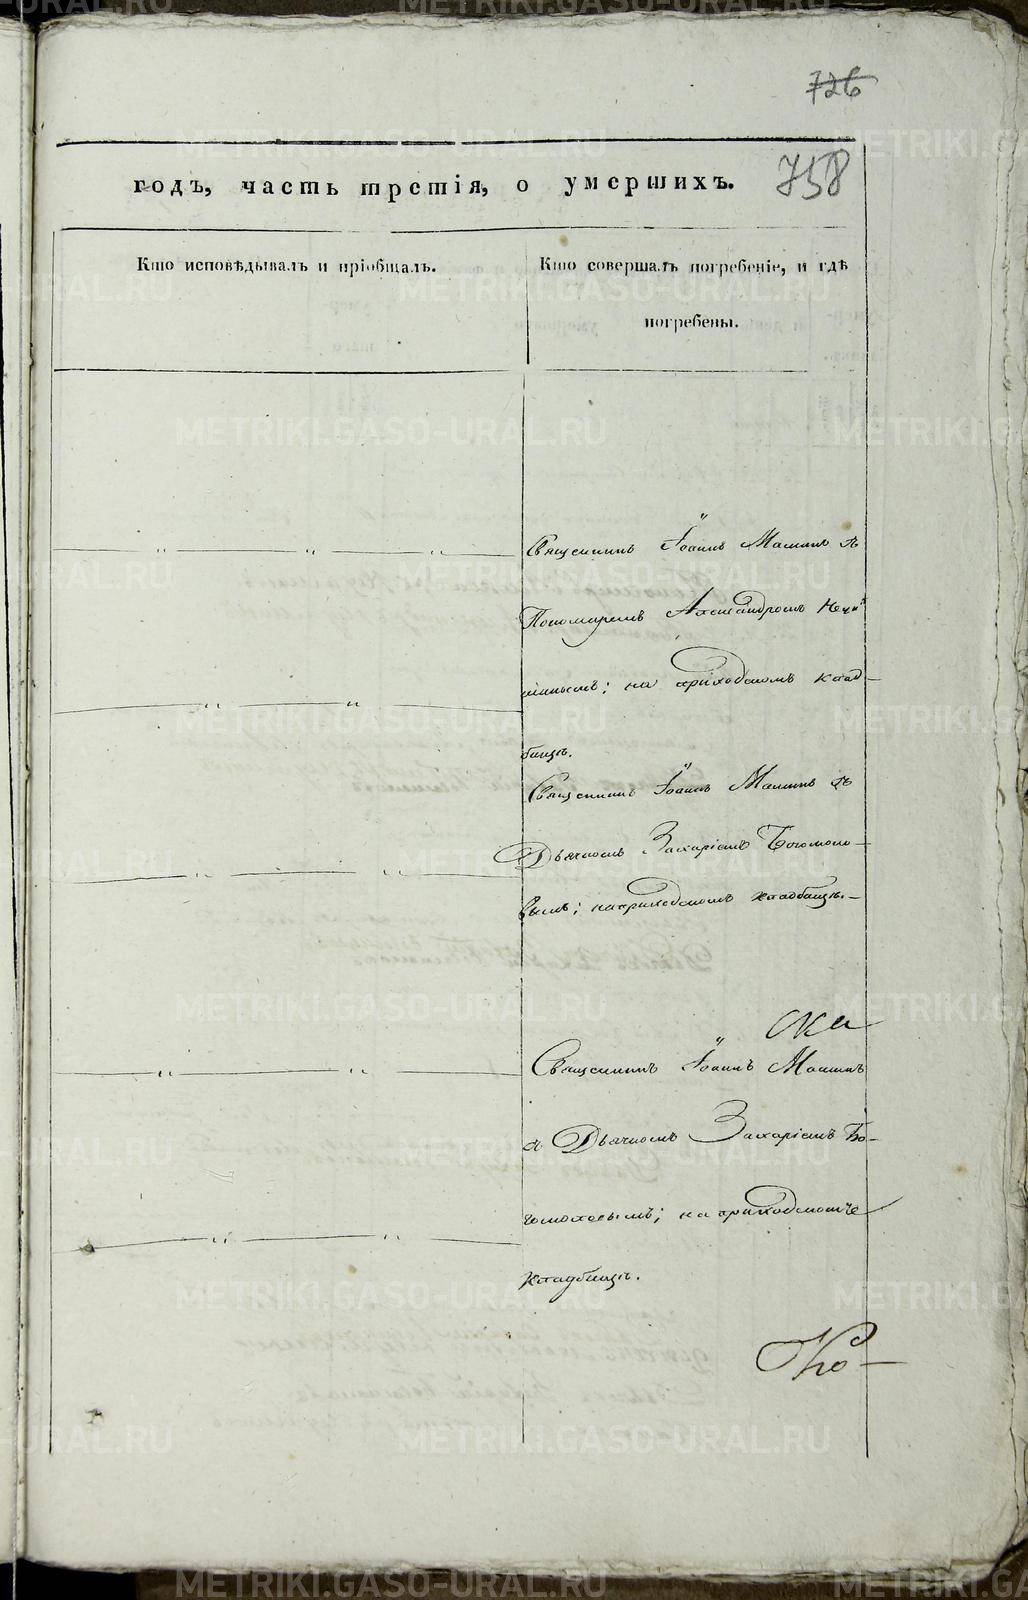 726
758
годъ, часть третія, о умершихъ.
Кто исповѣдывалъ и пріобщалъ.
Кто совершалъ погребеніе, и гдѣ
погребены.
Священникъ Іоаннъ съ
Пономаремъ Александромъ
на приходскомъ клад-
бищѣ.
Священникъ Іоаннъ съ
Дьячкомъ Захаріемъ Богомоло-
вымъ; на приходскомъ кладбищѣ.
Священникъ Іоаннъ
съ Дьячкомъ Захаріемъ Бо-
гомоловымъ; на приходскомъ
кладбищѣ.
METRIKI.GASO-URAL.RU